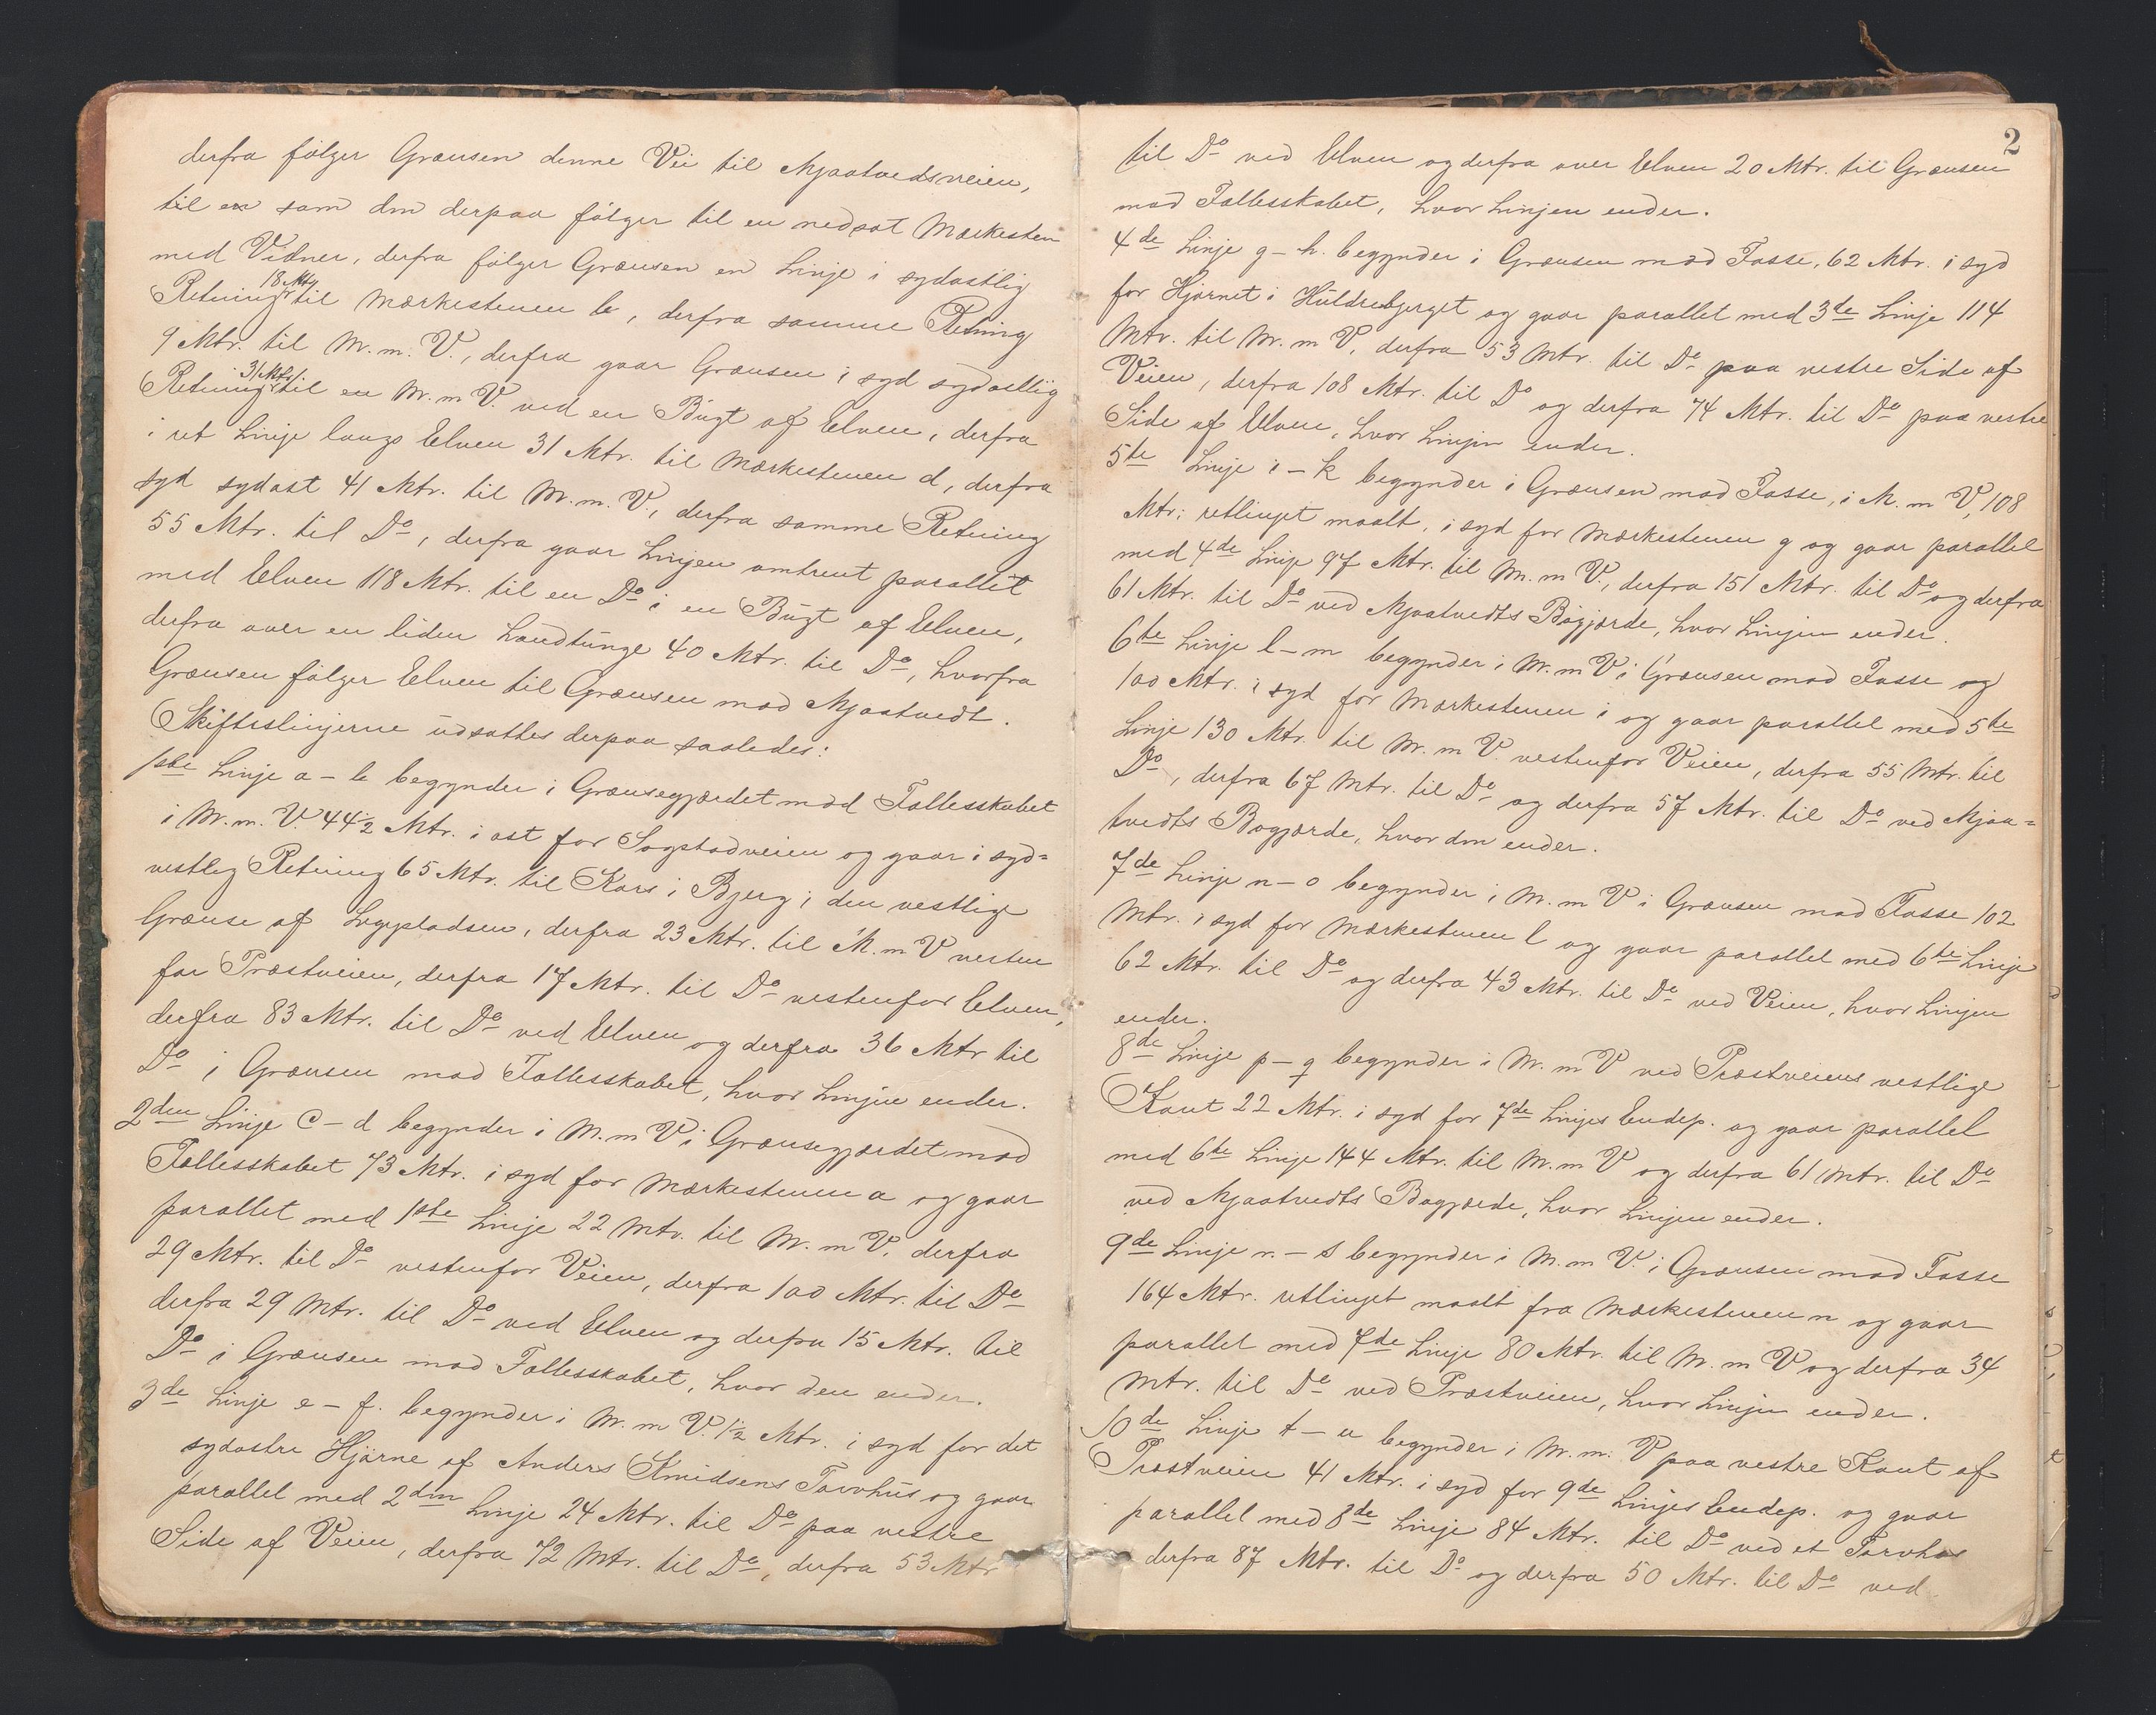 derfra følger Grænsen denne Vei til Mjaatvedsveien,
til en som den derpaa følger til en nedsat Mærkesten
med Vidner, derfra følger Grænsen en Linje i sydøstlig
Retning 18 Mtr. til Mærkestenen b, derfra samme Retning
9 Mtr. til M. m. V., derfra gaar Grænsen i syd sydøstlig
Retning 31 Mtr. til en M. m V. ved en Bugt af Elven, derfra
i ret Linje langs Elven 31 Mtr. til Mærkestenen d, derfra
syd sydøst 41 Mtr. til M. m. V., derfra samme Retning
55 Mtr. til Do, derfra gaar Linjen omtrent parallet
med Elven 118 Mtr. til en Do i en Bugt af Elven,
derfra over en liden Landtunge 40 Mtr. til Do, hvorfra
Grænsen følger Elven til Grænsen mod Mjaatvedt.
Skifteslinjerne udsattes derpaa saaledes:
1ste Linje a - b begynder i Grænsegjærdet mod Fællesskabet
i M. m. V. 44½ Mtr. i øst for Sogstadveien og gaar i syd=
vestlig Retning 65 Mtr. til Kors i Bjerg i den vestlige
Grænse af Legepladsen, derfra 23 Mtr. til M. m V vesten
for Præstveien, derfra 17 Mtr. til Do vestenfor Elven,
derfra 83 Mtr. til Do ved Elven og derfra 36 Mtr til
Do i Grænsen mod Fællesskabet, hvor Linjen ender.
2den Linje c - d begynder i M. m V i Grænsegjærdet mod
Fællesskabet 73 Mtr. i syd for Mærkestenen a og gaar
parallet med 1ste Linje 22 Mtr. til M. m V. derfra
29 Mtr. til Do vestenfor Veien, derfra 100 Mtr. til Do
derfra 29 Mtr. til Do ved Elven og derfra 15 Mtr. til
Do i Grænsen mod Fællesskabet, hvor den ender.
3de Linje e - f. begynder i M. m V. 1½ Mtr. i syd for det
sydøstre Hjørne af Anders Knudsens Torvhus og gaar
parallel med 2den Linje 24 Mtr. til Do paa vestre
Side af Veien, derfra 72 Mtr. til Do, derfra 53 Mtr
2
til Do ved Elven og derfra over Elven 20 Mtr. til Grænsen
mod Fællesskabet, hvor Linjen ender.
4de Linje g - h. begynder i Grænsen mod Fosse, 62 Mtr. i syd
for Hjørnet i Huldrebjerget og gaar parallet med 3de Linje 114
Mtr. til M. m V, derfra 53 Mtr. til Do paa vestre Side af
Veien, derfra 108 Mtr. til Do og derfra 74 Mtr. til Do paa vestre
Side af Elven, hvor Linjen ender.
5te Linje i - k begynder i Grænsen mod Fosse, i M. m V, 108
Mtr. retlinjet maalt, i syd for Mærkestenen g og gaar parallel
med 4de Linje 97 Mtr. til M. m V., derfra 151 Mtr. til Do og derfra
61 Mtr. til Do ved Mjaatvedts Bøgjærde, hvor Linjen ender.
6te Linje l - m begynder i M. m V i Grænsen mod Fosse og
100 Mtr. i syd for Mærkestenen i og gaar parallel med 5te
Linje 130 Mtr. til M. m V. vestenfor Veien, derfra 55 Mtr. til
Do, derfra 67 Mtr. til Do og derfra 57 Mtr. til Do ved Mjaa=
tvedts Bøgjærde, hvor den ender.
7de Linje n - o begynder i M. m V i Grænsen mod Fosse 102
Mtr. i syd for Mærkestenen l og gaar parallel med 6te Linje
62 Mtr. til Do og derfra 43 Mtr. til Do ved Veien, hvor Linjen
ender.
8de Linje p - q begynder i M. m V ved Præstveiens vestlige
Kant 22 Mtr. i syd for 7de Linjes Endep. og gaar parallel
med 6te Linje 144 Mtr. til M. m V og derfra 61 Mtr. til Do
ved Mjaatvedts Bøgjærde, hvor Linjen ender.
9de Linje r. - s begynder i M. m V. i Grænsen mod Fosse
164 Mtr. retlinjet maalt fra Mærkestenen n og gaar
parallel med 7de Linje 80 Mtr. til M. m V og derfra 34
Mtr. til Do ved Præstveien, hvor Linjen ender.
10de Linje t - u begynder i M. m. V paa vestre Kant af
Præstveien 41 Mtr. i syd for 9de Linjes Endep. og gaar
parallel med 8de Linje 84 Mtr. til Do ved et Torvhus
derfra 87 Mtr. til Do og derfra 50 Mtr. til Do ved